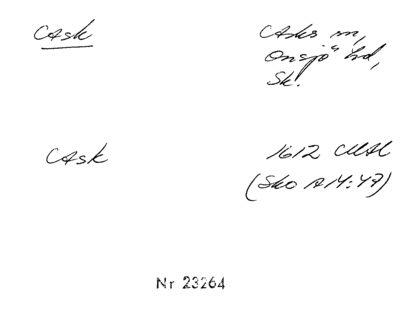 Ask
Asks sn,
Onsjö hd,
Sk.
Ask
1612
(Sko AM:47)
Nr 23264